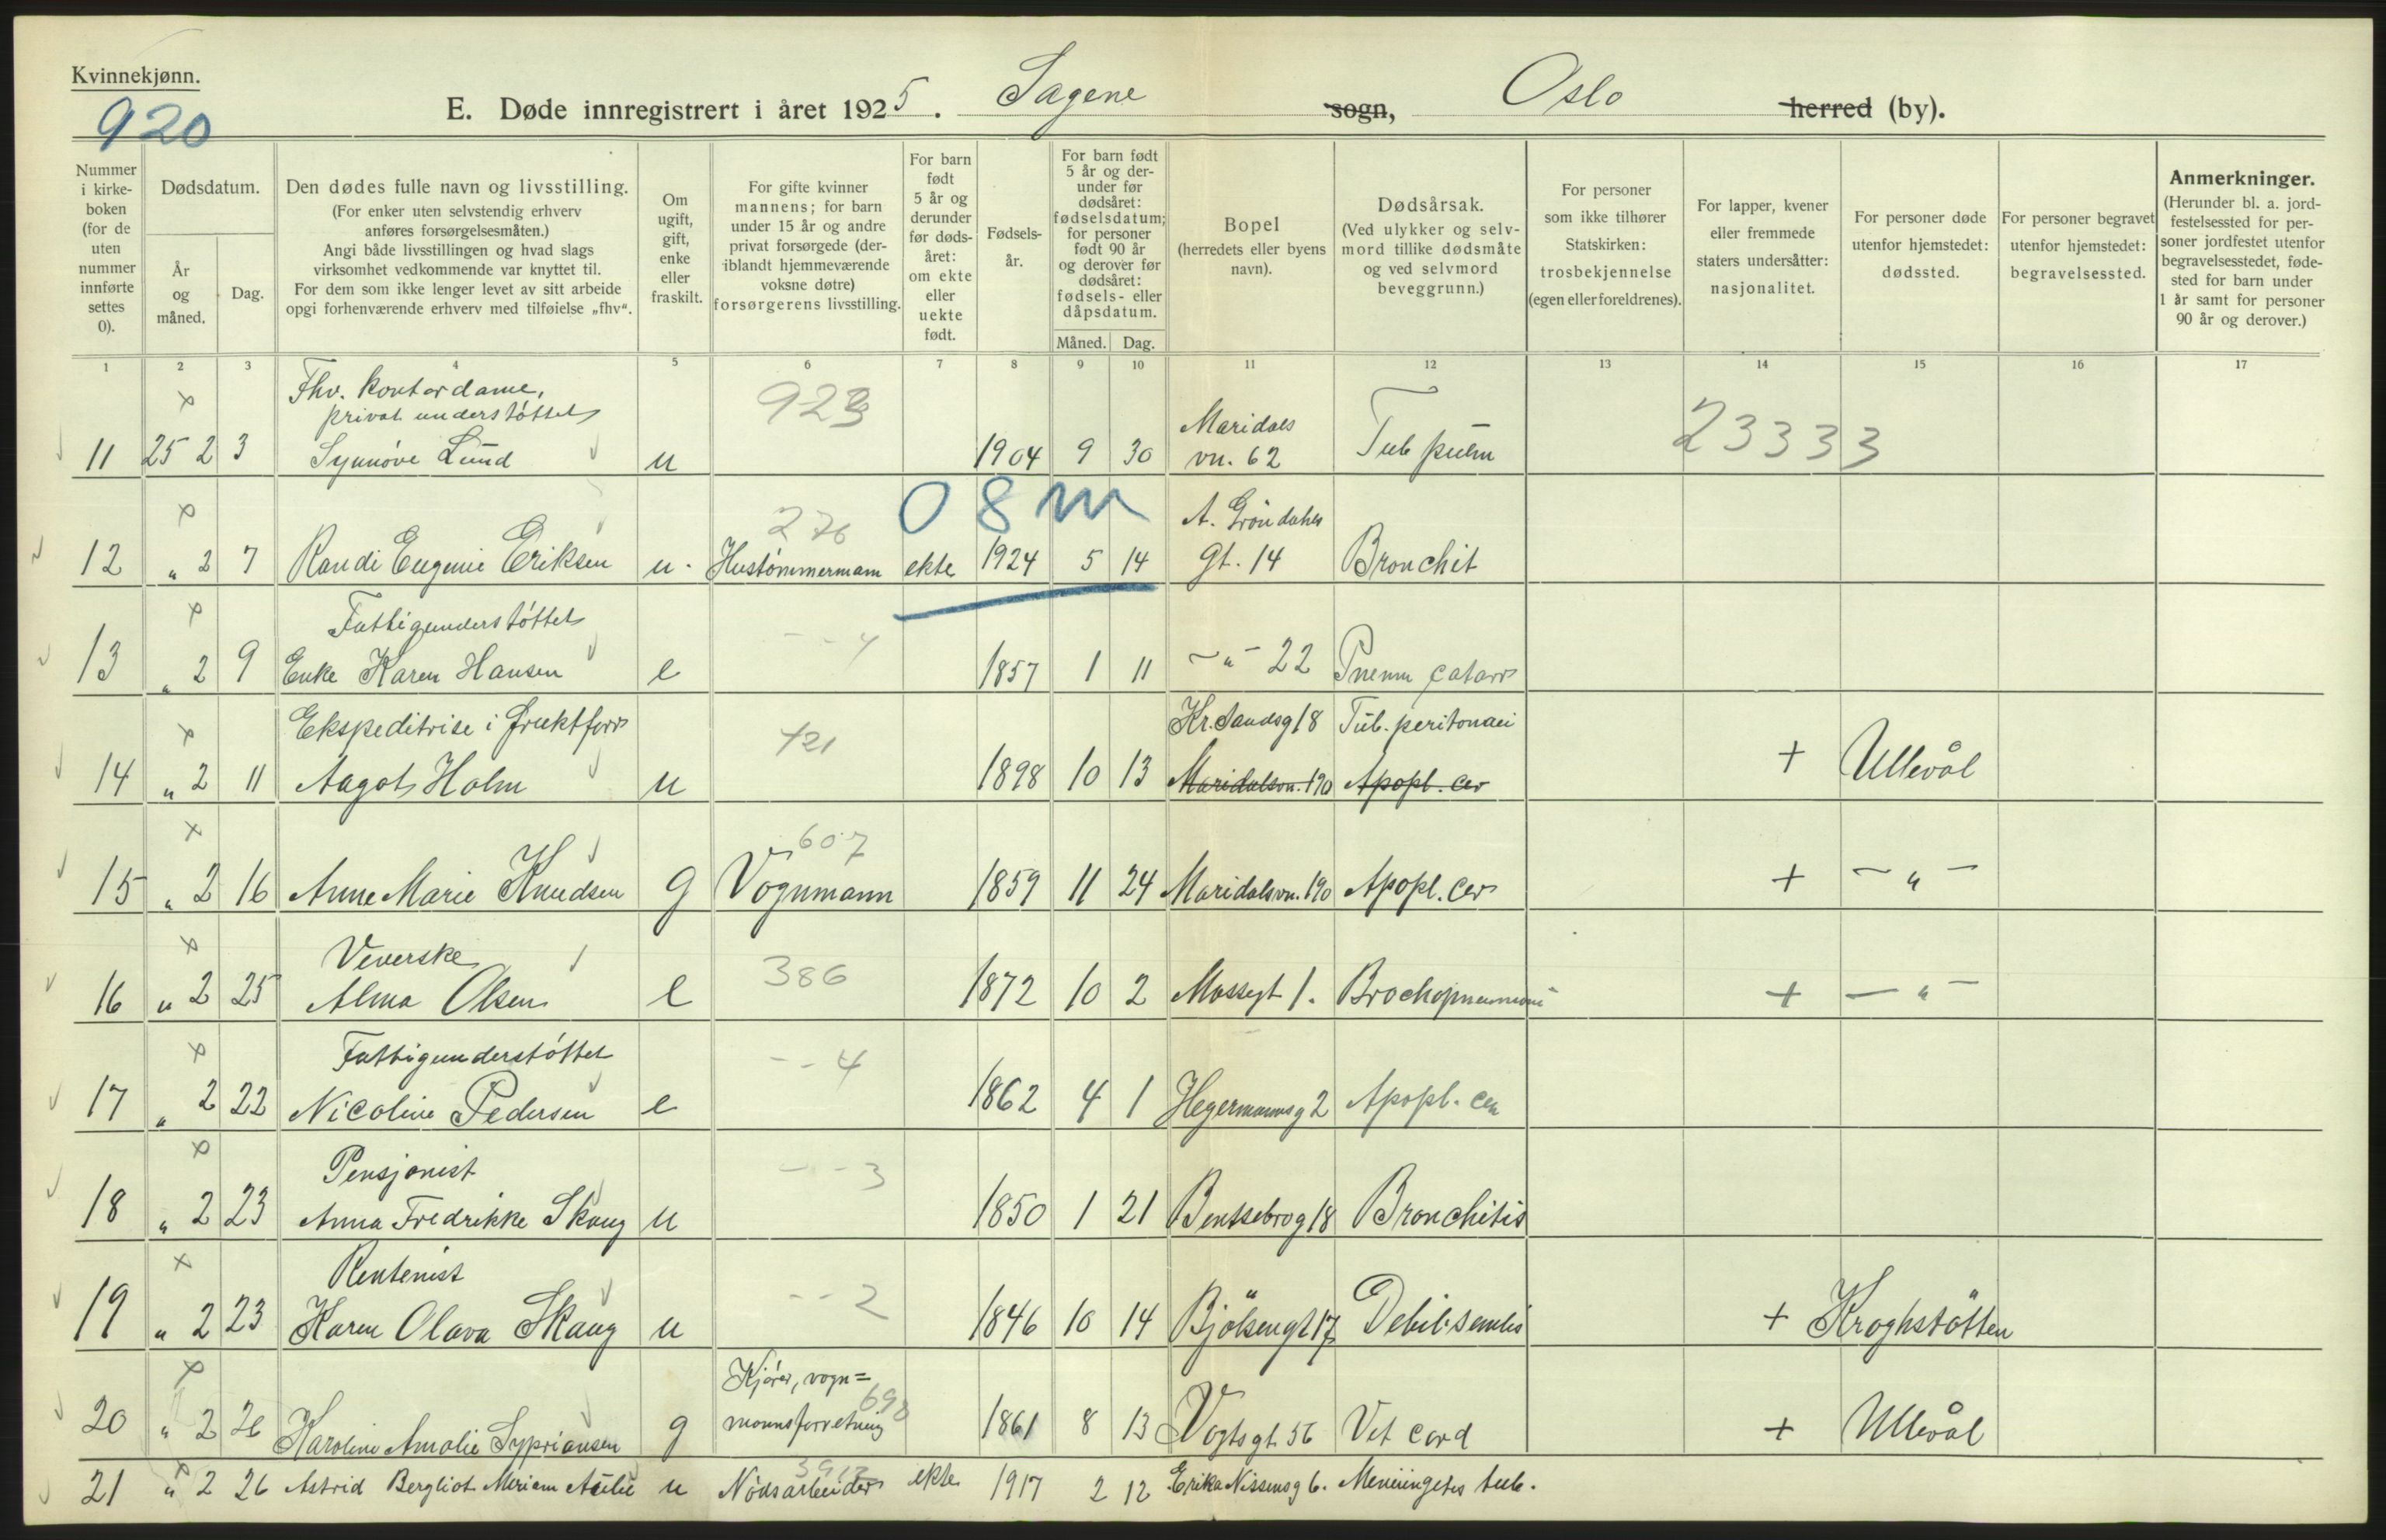 Kvinnekjønn.
920
E. Døde innregistrert i året 1925. Sagene sogn, Oslo herred (by).
Nummer i kirkeboken (for de uten nummer innførte settes 0).
Dødsdatum.
År og måned.
Dag.
Den dødes fulle navn og livsstilling.
(For enker uten selvstendig erhverv anføres forsørgelsesmåten.)
Angi både livsstillingen og hvad slags virksomhet vedkommende var knyttet til.
For dem som ikke lenger levet av sitt arbeide opgi forhenværende erhverv med tilføielse „fhv“.
Om ugift, gift, enke eller fraskilt.
For gifte kvinner mannens; for barn under 15 år og andre privat forsørgede (deriblandt hjemmeværende voksne døtre) forsørgerens livsstilling.
For barn født 5 år og derunder før dødsåret: om ekte eller uekte født.
Fødselsår.
For barn født 5 år og derunder før dødsåret: fødselsdatum; for personer født 90 år og derover før dødsåret: fødsels- eller dåpsdatum.
Måned. Dag.
Bopel (herredets eller byens navn).
Dødsårsak.
(Ved ulykker og selvmord tillike dødsmåte og ved selvmord beveggrunn.)
For personer som ikke tilhører Statskirken: trosbekjennelse (egen eller foreldrenes).
For lapper, kvener eller fremmede staters undersåtter: nasjonalitet.
For personer døde utenfor hjemstedet: dødssted.
For personer begravet utenfor hjemstedet: begravelsessted.
Anmerkninger.
(Herunder bl. a. jordfestelsessted for personer jordfestet utenfor begravelsesstedet, fødested for barn under 1 år samt for personer 90 år og derover.)
1 2 3 4 5 6 7 8 9 10 11 12 13 14 15 16 17
Fhv. kontordame,
privat understøttet 923 Maridals 23333
11 25 2 3 Synnøve Lund u 1904 9 30 vn. 62 Tub pulm
276 08 m A. Grøndahls
12 „ 2 7 Randi Eugenie Eriksen u. Hustømmermann ekte 1924 5 14 gt. 14 Bronchit
Fattigunderstøttet
13 „ 2 9 Enke Karen Hansen e - - 4 1857 1 11 -„- 22 Pneum catarr
Ekspeditrise i fruktforr 421 Kr.sandsg 18 Tub. peritonaei
14 „ 2 11 Aagot Holm u 1898 10 13 Maridalsvn. 190 Apopl. cer + Ullevål
607
15 „ 2 16 Anne Marie Knudsen g Vognmann 1859 11 24 Maridalsvn. 190 Apopl. cer + -„-
Veverske 386
16 „ 2 25 Alma Olsen e 1872 10 2 Mossegt 1. Brochopneumoni + -„-
Fattigunderstøttet - - 4
17 „ 2 22 Nicoline Pedersen e 1862 4 1 Hegermannsg 2 Apopl. cer
Pensjonist - - 3
18 „ 2 23 Anna Fredrikke Skaug u 1850 1 21 Bentsebrog 18 Bronchitis
Rentenist - - 2
19 „ 2 23 Karen Olava Skaug u 1846 10 14 Bjølsengt 17 Debil. senilis + Kroghstøtten
Kjører, vogn=
690
20 „ 2 26 Karoline Amalie Sypriansen g mannsforretning 1861 8 13 Vogtsgt. 56 Vit cord + Ullevål
21 „ 2 26 Astrid Bergliot Miriam u Nødsarbeider ekte 1917 2 12 Erika Nissensg 6. Meningitis tub.